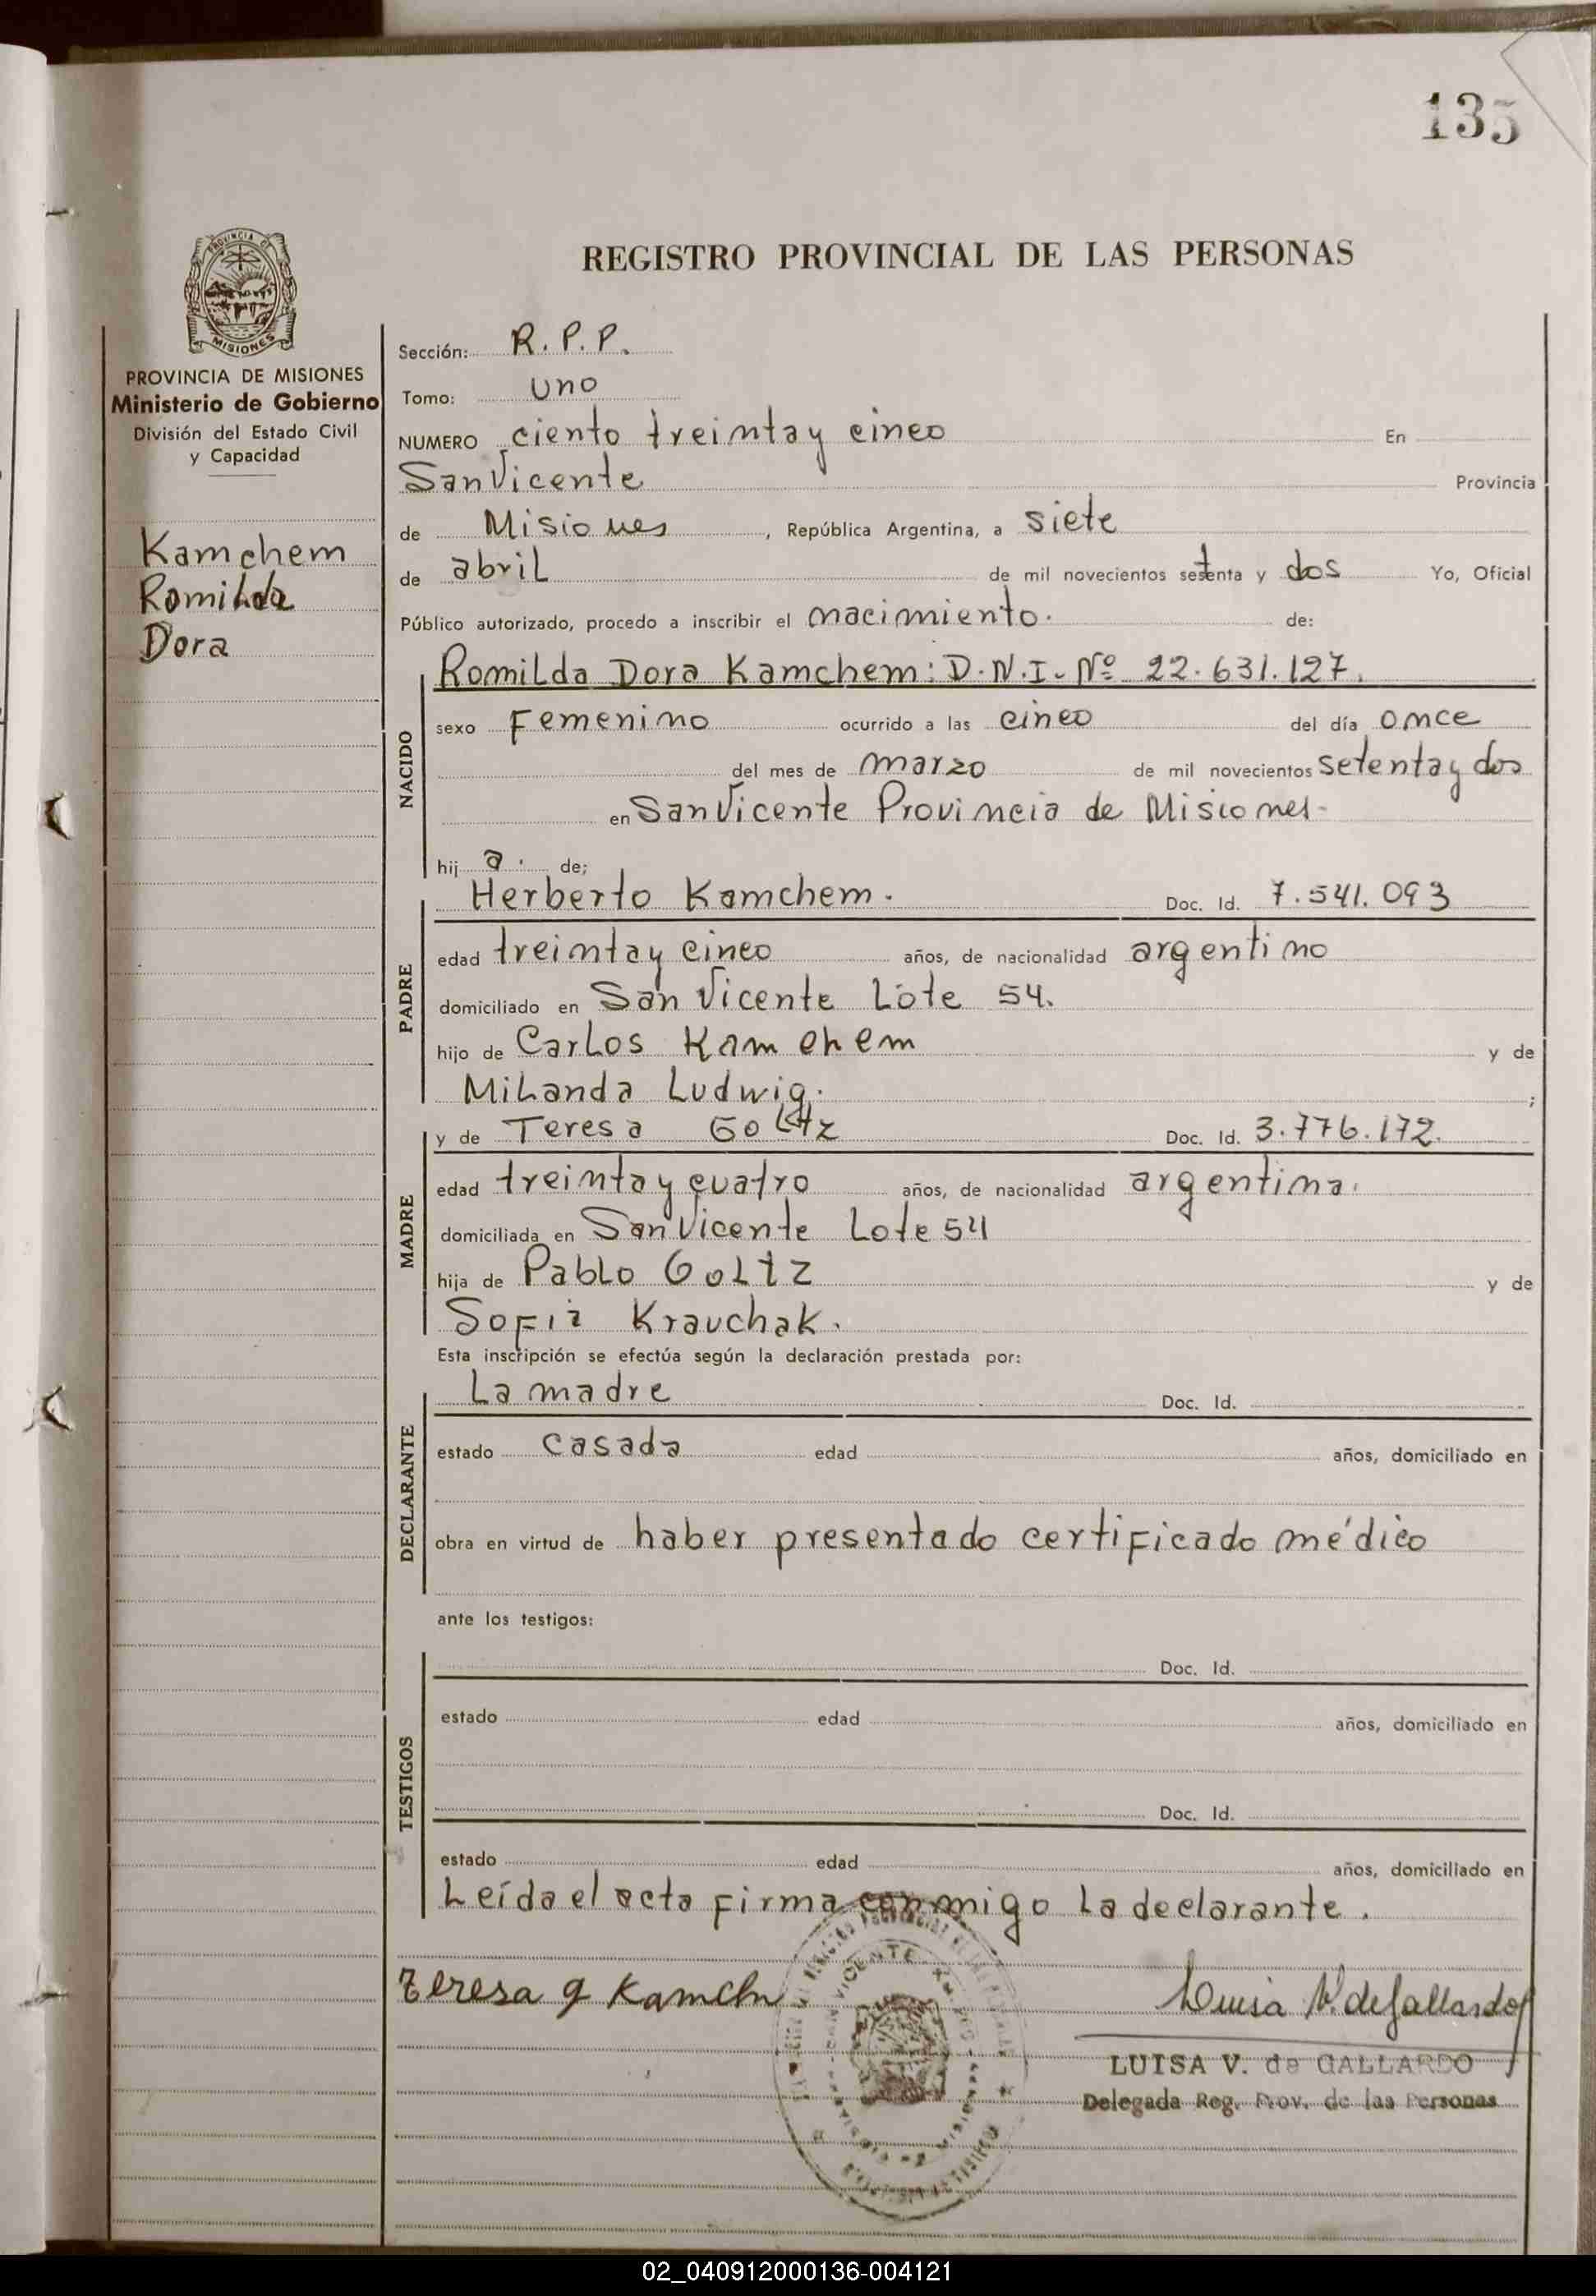 135
REGISTRO PROVINCIAL DE LAS PERSONAS
MISIONES
PROVINCIA DE MISIONES
Ministerio de Gobierno
División del Estado Civil
y Capacidad
Kamchem
Romilda
Dora
Sección: R.P.P.
Tomo: uno
NUMERO ciento treinta y cinco En
San Vicente Provincia
de Misiones, República Argentina, a siete
de abril de mil novecientos setenta y dos Yo, Oficial
Público autorizado, procedo a inscribir el nacimiento. de:
NACIDO
Romilda Dora Kamchem: D.N.I. Nº 22.631.127.
sexo Femenino ocurrido a las cinco del día once
del mes de marzo de mil novecientos setenta y dos
en San Vicente Provincia de Misiones-
hij a. de;
PADRE
Herberto Kamchem. Doc. Id. 7.541.093
edad treinta y cinco años, de nacionalidad argentino
domiciliado en San Vicente Lote 54.
hijo de Carlos Kamchem y de
Milanda Ludwig. ;
MADRE
y de Teresa Goltz Doc. Id. 3.776.172.
edad treinta y cuatro años, de nacionalidad argentina.
domiciliada en San Vicente Lote 54
hija de Pablo Goltz y de
Sofia Krauchak.
Esta inscripción se efectúa según la declaración prestada por:
DECLARANTE
La madre Doc. Id.
estado casada edad años, domiciliado en
obra en virtud de haber presentado certificado médico
ante los testigos:
TESTIGOS
Doc. Id.
estado edad años, domiciliado en
Doc. Id.
estado edad años, domiciliado en
Leída el acta firma conmigo la declarante.
Teresa g Kamchn
Luisa V. de Gallardo
LUISA V. de GALLARDO
Delegada Reg. Prov. de las Personas
02_040912000136-004121